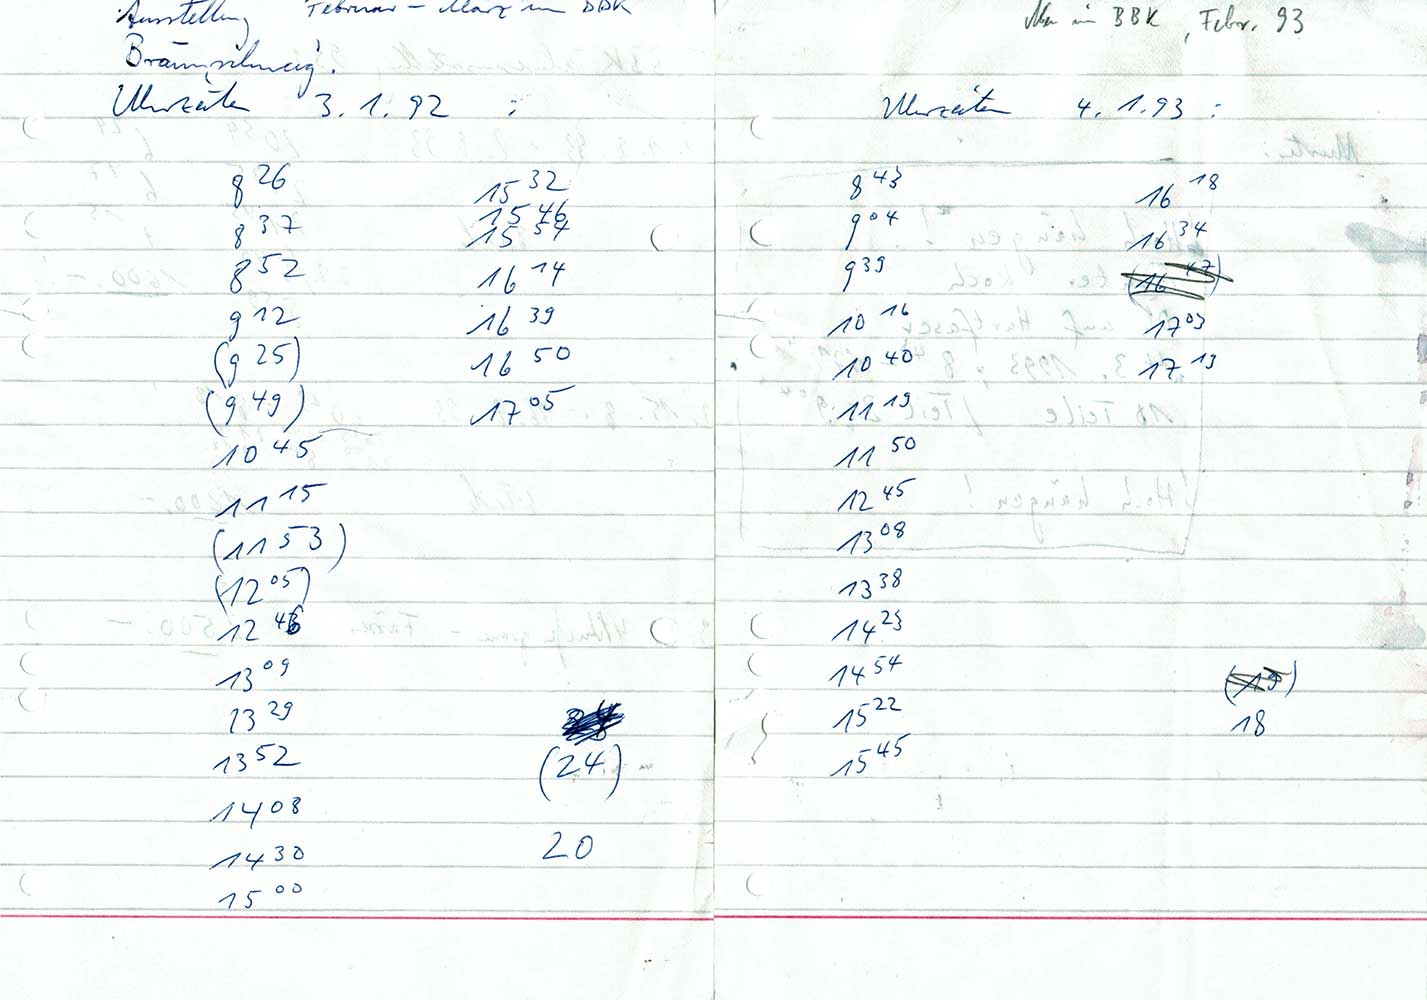 Ausstellung Februar – März im BBK
Braunschweig.
Uhrzeiten 3.1.92 :
8 26
8 37
8 52
9 12
(9 25)
(9 49)
10 45
11 15
(11 53)
(12 05)
12 46
13 09
13 29
13 52
14 08
14 30
15 00
15 32
15 46
15 54
16 14
16 39
16 50
17 05
(24)
20
in BBK, Febr. 93
Uhrzeiten 4.1.93 :
8 43
9 04
9 39
10 16
10 40
11 19
11 50
12 45
13 08
13 38
14 23
14 54
15 22
15 45
16 18
16 34
(16 47)
17 03
17 13
(19)
18